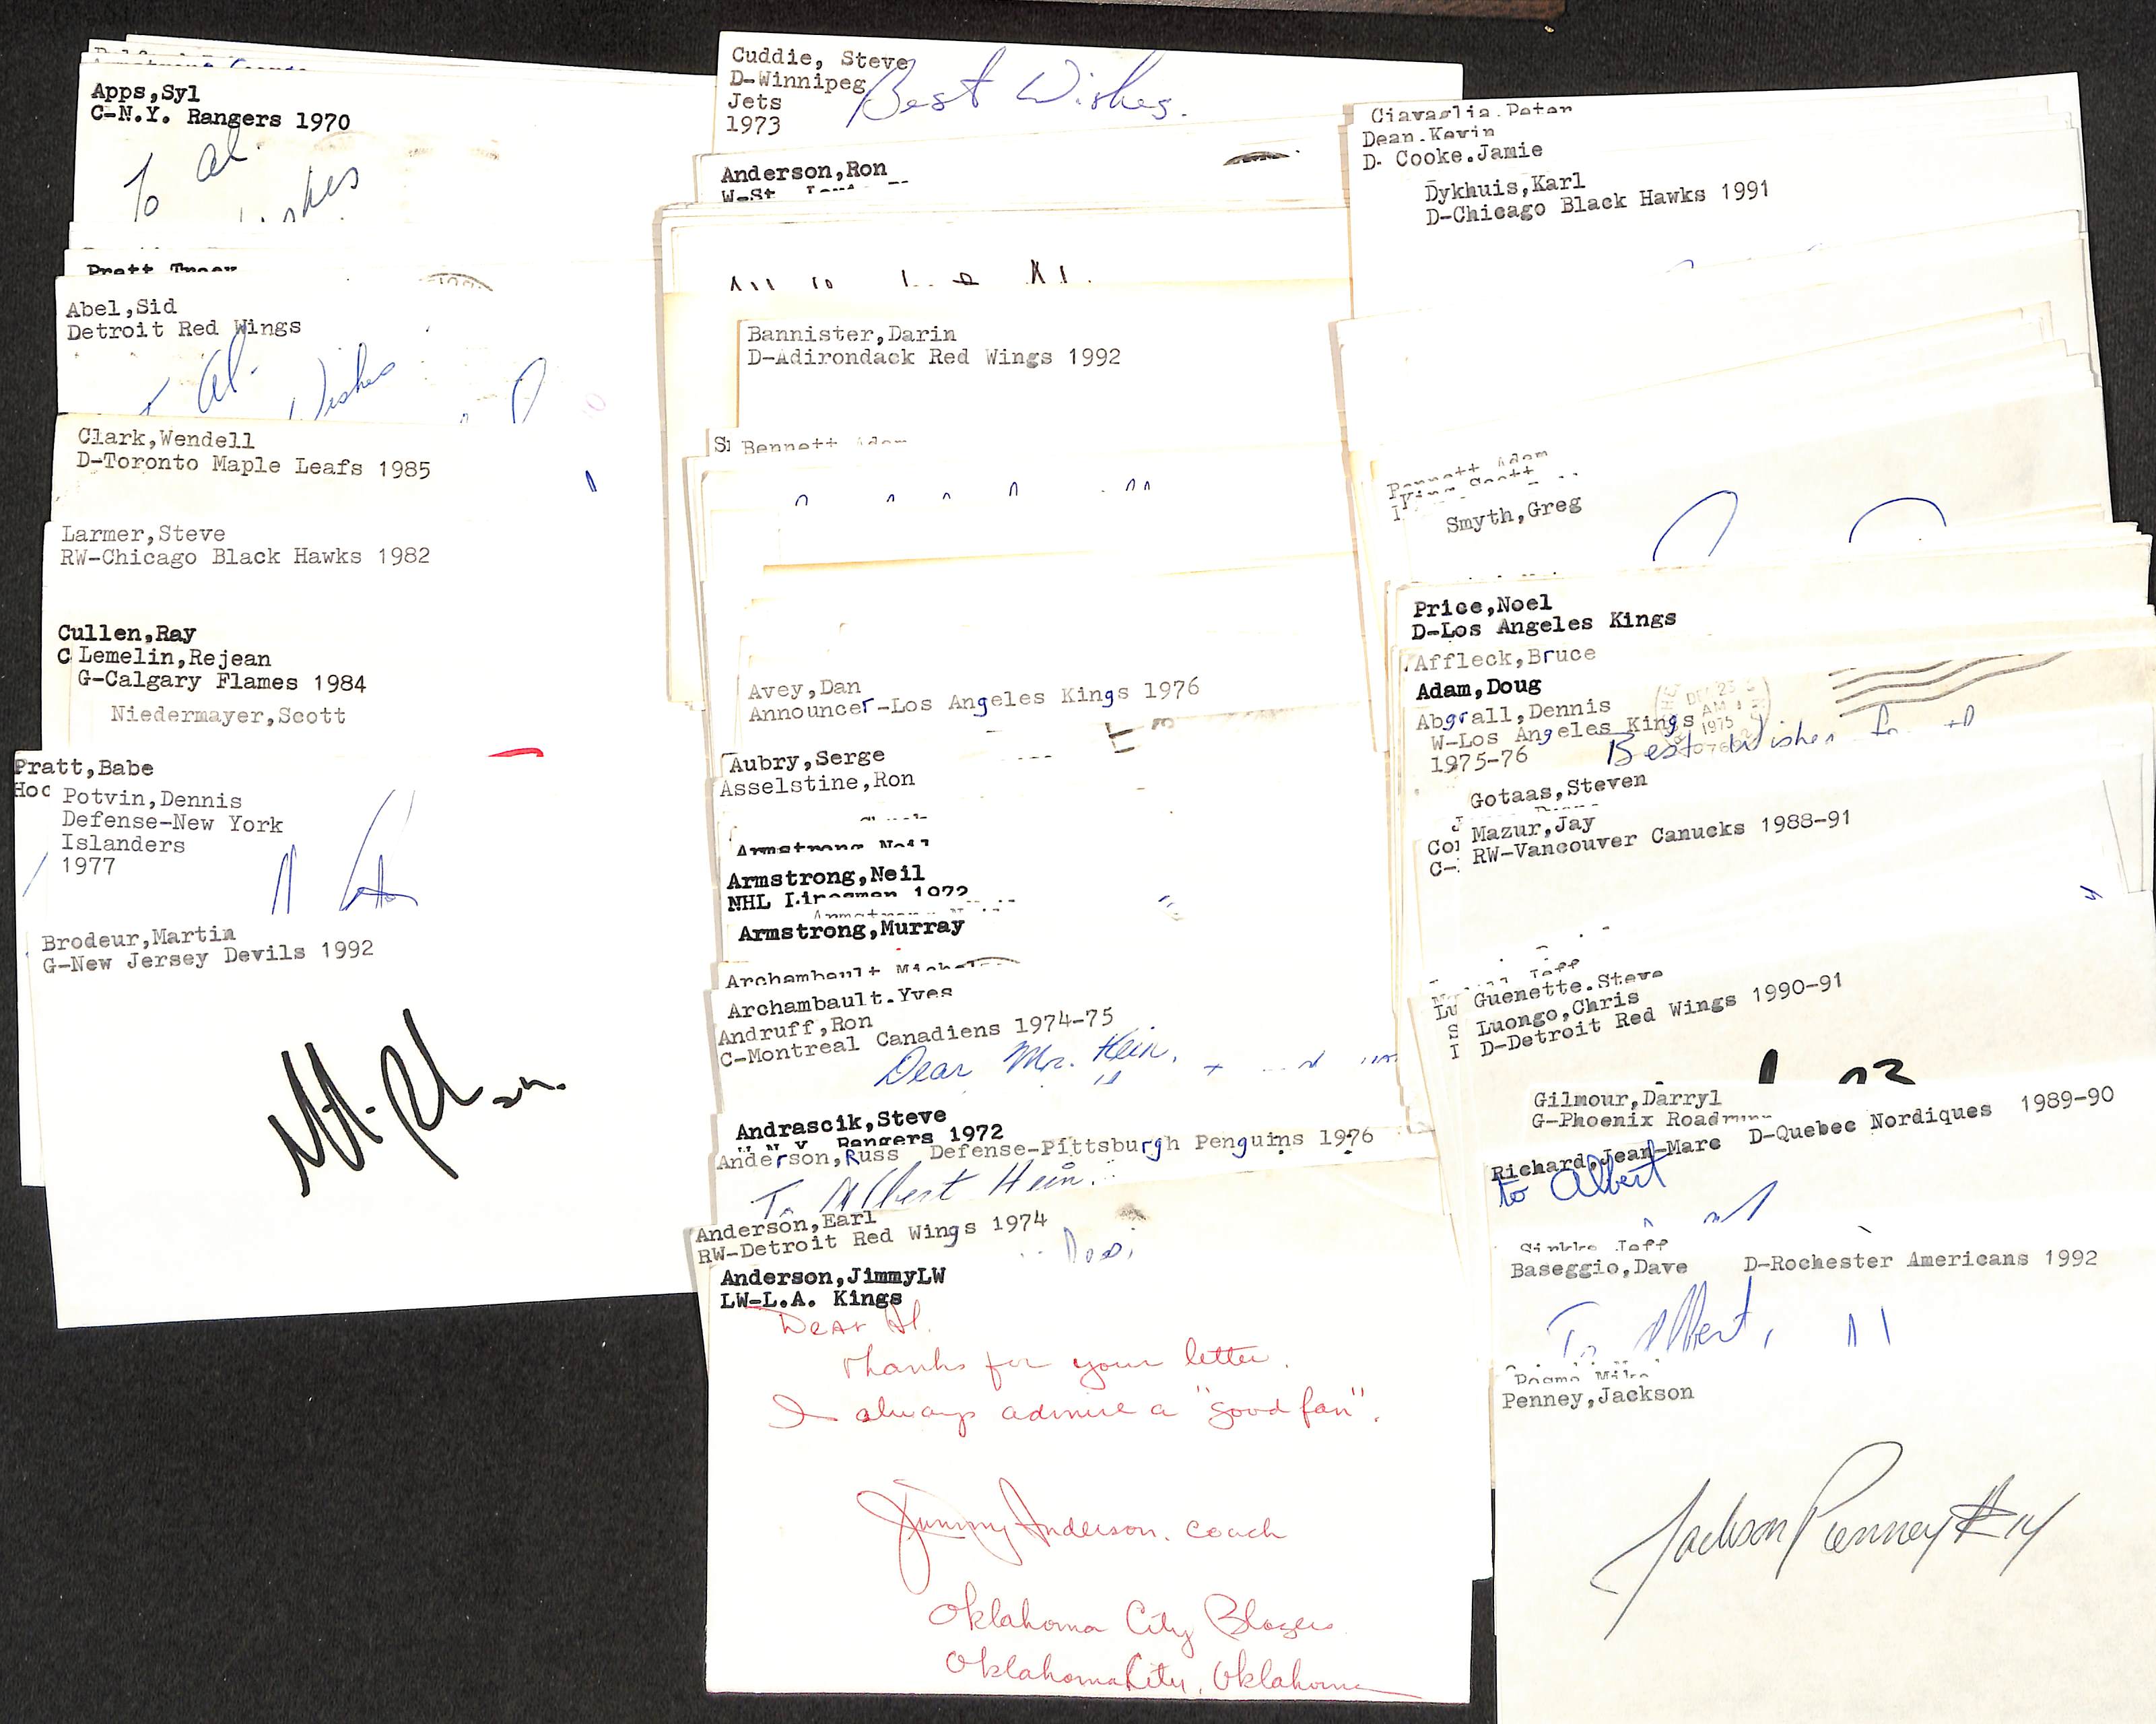 Apps,Syl
C-N.Y. Rangers 1970
To al.
Abel,Sid
Detroit Red Wings
al.
Wishes
Clark,Wendell
D-Toronto Maple Leafs 1985
Larmer,Steve
RW-Chicago Black Hawks 1982
Cullen,Ray
C Lemelin,Rejean
G-Calgary Flames 1984
Niedermayer,Scott
Pratt,Babe
Hoc Potvin,Dennis
Defense-New York
Islanders
1977
Brodeur,Martin
G-New Jersey Devils 1992
Cuddie, Steve
D-Winnipeg
Jets
1973
Best Wishes.
Anderson,Ron
W-St.
Bannister,Darin
D-Adirondack Red Wings 1992
Bennett Adam
Avey,Dan
Announcer-Los Angeles Kings 1976
Aubry,Serge
Asselstine,Ron
Armstrong Neil
Armstrong,Neil
NHL Linesman 1972
Armstrong,Murray
Archambault Michel
Archambault.Yves
Andruff,Ron
C-Montreal Canadiens 1974-75
Dear Mr. Hein,
Andrascik,Steve
Rangers 1972
Anderson,Russ Defense-Pittsburgh Penguins 1976
To Albert Hein.
Anderson,Earl
RW-Detroit Red Wings 1974
Anderson,JimmyLW
LW-L.A. Kings
Dear Al.
Thanks for your letter.
I always admire a "good fan".
Jimmy Anderson. coach
Oklahoma City Blazers
Oklahoma City, Oklahoma
Ciavaglia.Peter
Dean.Kevin
D- Cooke.Jamie
Dykhuis,Karl
D-Chicago Black Hawks 1991
Bennett Adam
King Scott
Smyth,Greg
Price,Noel
D-Los Angeles Kings
Affleck,Bruce
Adam,Doug
Abgrall,Dennis
W-Los Angeles Kings
1975-76
DEC 23
AM
1975
Best Wishes
Gotaas,Steven
Mazur,Jay
RW-Vancouver Canucks 1988-91
Guenette.Steve
Luongo,Chris
D-Detroit Red Wings 1990-91
Gilmour,Darryl
G-Phoenix Roadrunn
Richard,Jean-Marc D-Quebec Nordiques 1989-90
to Albert
Sirkka Jeff
Baseggio,Dave D-Rochester Americans 1992
To Albert,
Posma Mike
Penney,Jackson
Jackson Penney #14